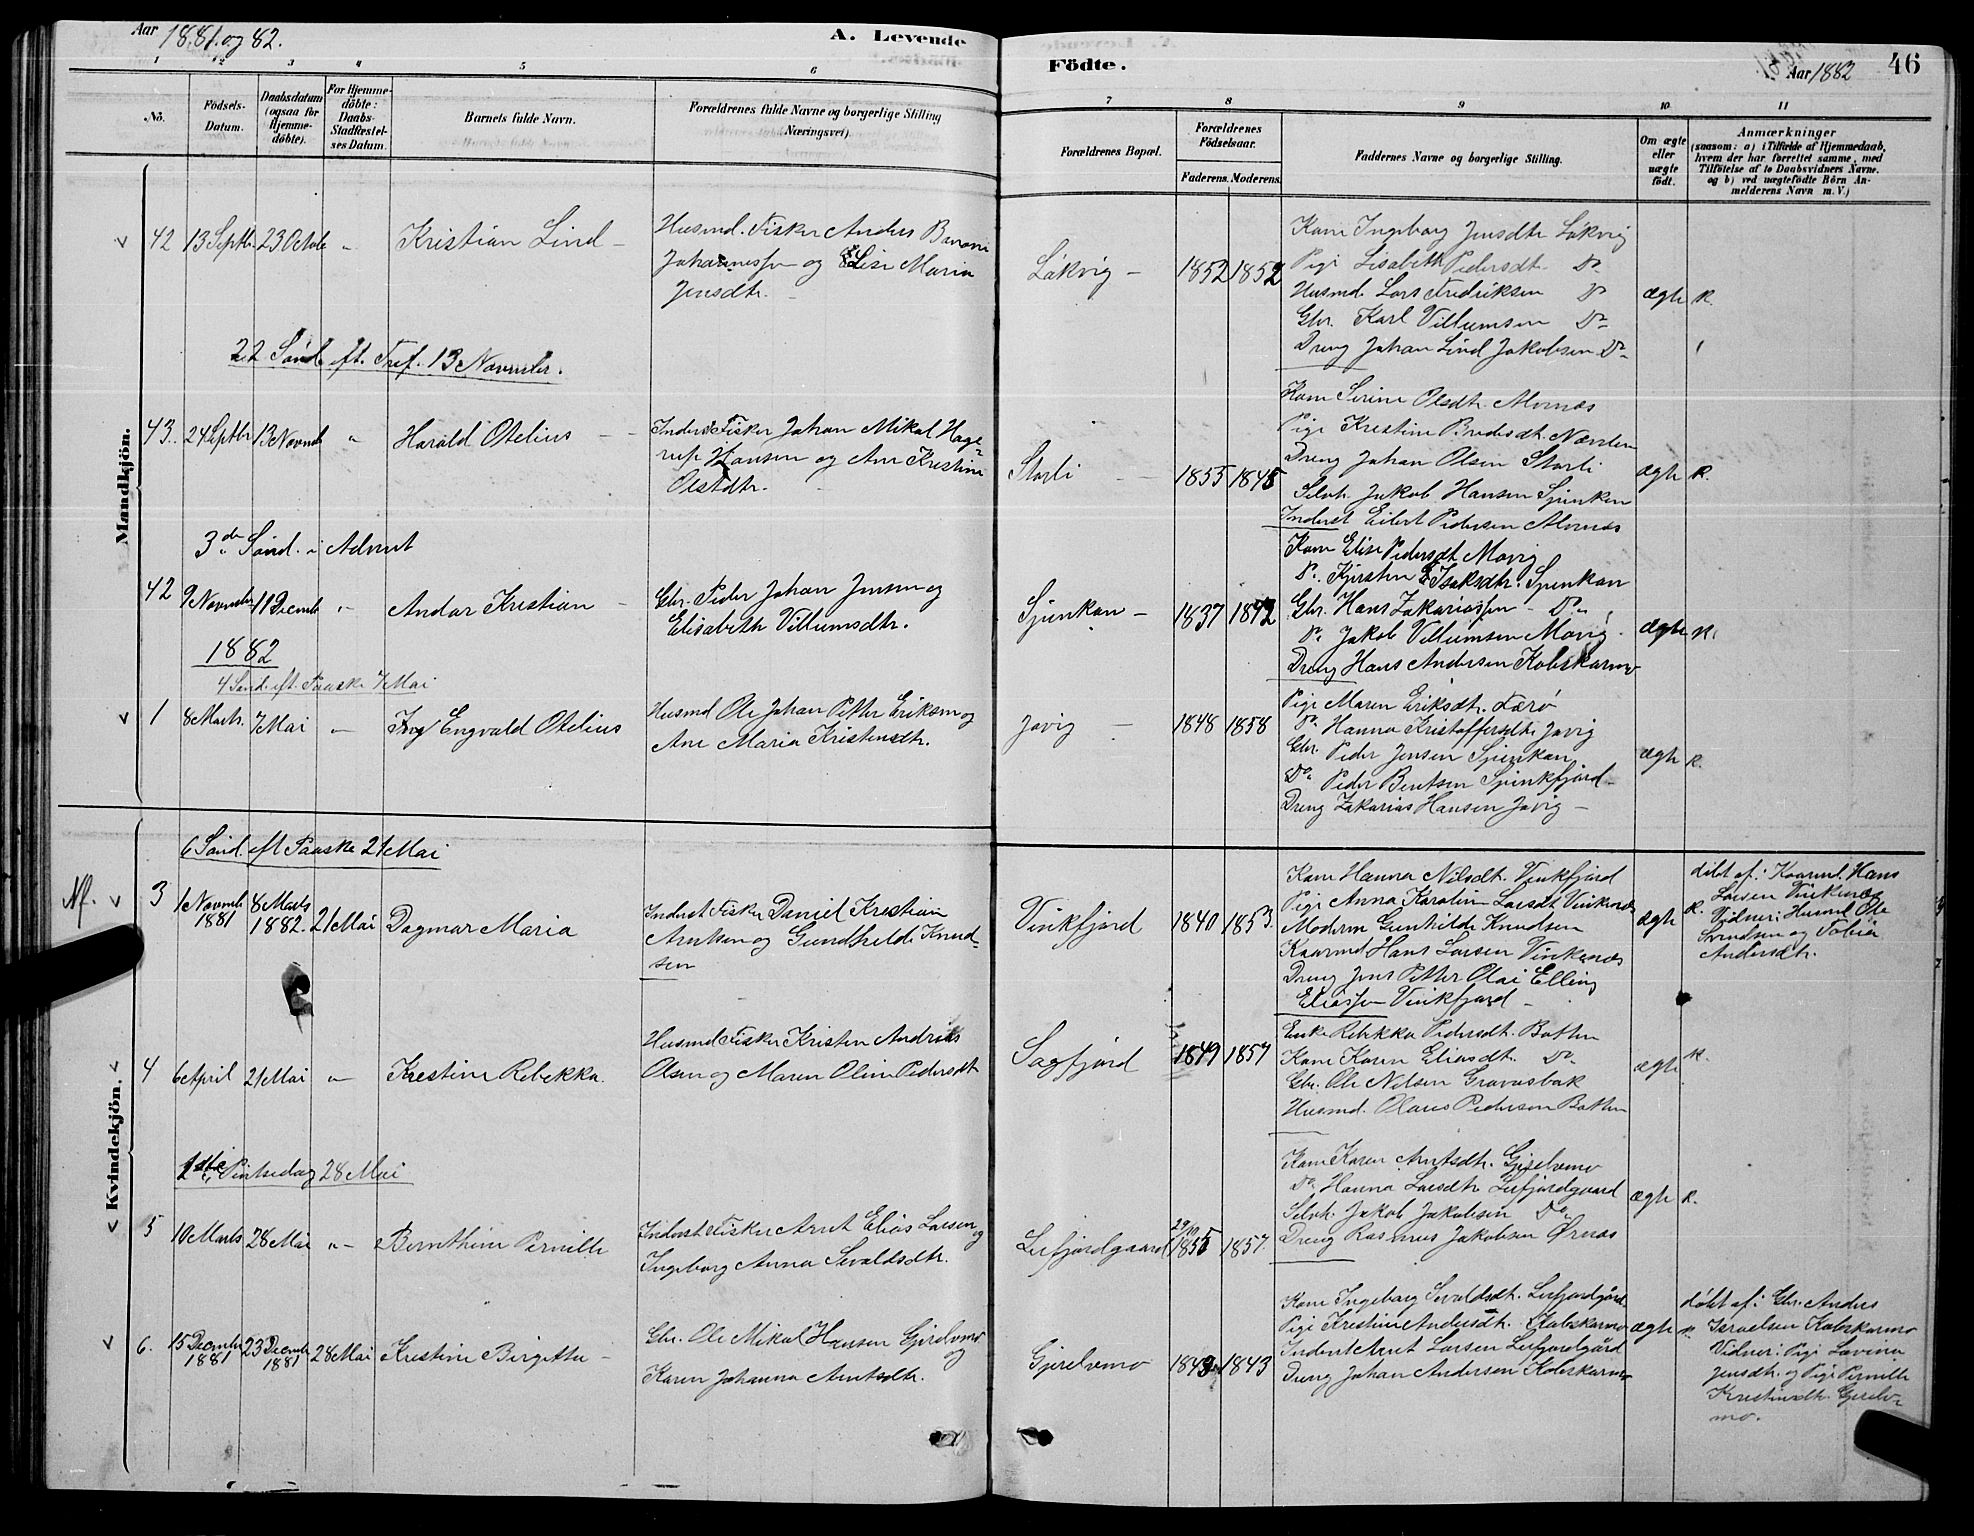 Aar 1881 og 82.
A. Levende
Födte.
Aar 1882
46
1 2 3 4 5 6 7 8 9 10 11
No.
Födsels-
Datum.
Daabsdatum
(ogsaa for
Hjemme-
döbte).
For Hjemme-
döbte:
Daabs-
Stadfæstel-
ses Datum.
Barnets fulde Navn.
Forældrenes fulde Navne og borgerlige Stilling
Næringsvei).
Forældrenes Bopæl.
Forældrenes
Födselsaar.
Faderens. Moderens.
Faddernes Navne og borgerlige Stilling.
Om ægte
eller
uægte
födt.
Anmærkninger
(saasom: a) i Tilfælde af Hjemmedaab,
hvem der har forrettet samme, med
Tilföielse af to Daabsvidners Navne.
og b) ved uægtefödte Börn An-
melderens Navn m. V.)
Mandkjön.
42 13 Septbr 23 Octobr „ Kristian Lind –
Husmd. Fisker Anders
Johannessen og Elise Maria
Jensdtr.
Låkvig – 1852 1852
Kone Ingeborg Jensdtr Låkvig
Pige Lisabeth Pedersdtr. Do
Husmd. Lars Fredriksen Do
Gbr. Karl Villumsen Do
Dreng Johan Lind Jakobsen Do
ægte K.
22 Sönd. eft. Tref. 13 November.
43. 24 Septbr 13 Novmbr „ Harald Otelius –
Inderst Fisker Johan Mikal Hage-
rup Hansen og Ane Kristine
Olsdtr.
Storli – 1855 1845
Kone Serine Olsdtr. Alvenæs
Pige Kristine Bredesdt.
Dreng Johan Olsen Storli
Selvh. Jakob Hansen Spenken
Inderst Eilert Pedersen Alvenæs
ægte K.
3de Sönd. i Advent
42 9 November 11 Decemb „ Andor Kristian –
Gbr. Peder Johan Jensen og
Elisabeth Villumsdtr.
Sjunkan – 1837 1842
Kone Elise Pedersdt. Movig
P. Kjersten Isaksdtr. Sjunkan
Gbr. Hans Zakariassen – Do
Do Jakob Villumsen Movig
Dreng Hans Andersen Kobskarmo
ægte K.
1882
4 Sönd. eft. Paaske 7 Mai
1 8 Marts. 7 Mai „ Engvald Otelius
Husmd Ole Johan Petter Eriksen og
Ane Maria Kristensdtr.
Jøvig – 1848 1858
Pige Maren Eriksdtr. Færø
Do Hanna Kristoffersdtr Jøvig
Gbr. Peder Jensen Sjunkan
Do Peder Bentsen Sjunkfjord –
Dreng Zakarias Hansen Jøvig –
ægte K.
6 Sönd. eft Paaske 21 Mai
Kvindekjön.
Nf. 3 1 Novmbr 1881 8 Marts 1882. 21 Mai Dagmar Maria
Inderst Fisker Daniel Kristian
Arntsen og Gundhilde Knud-
sen
Vinkfjord 1840 1853.
Kone Hanna Nilsdt. Vinkfjord
Pige Anna Karoline Larsdt Vinkenæs
Moderen Gunhilde Knudsen
Kaarmd Hans Larsen Vinkenæs
Dreng Jens Petter Olai Elling
Eliassen Vinkfjord –
ægte K.
döbt af: Kaarmd. Hans
Larsen Vinkenæs
Vidner: Husmd Ole
Svendsen og Tobia
Andersdt.
4 6 April 21 Mai „ Kristine Rebekka.
Husmd Fisker Kristen Andreas
Olsen og Maren Oline Pedersdt
Sagfjord 1849 1857
Enke Rebekka Pedersdt. Botten
Kone Karen Eliasdt. Do
Gbr. Ole Nilsen Gravasbak
Husmd. Olaus Pedersen Botten
ægte K.
2den Pintsedag 28 Mai
5 10 Marts 28 Mai „ Bernthine Pernille
Inderst Fisker Arnt Elias Larsen og
Ingeborg Anna Sevaldsdtr.
Leifjordgaard 29/10 1855 1857.
Kone Karen Arntsdtr. Gjeelvemo
Do Hanna Larsdtr Leifjordgaard
Selvh. Jakob Jakobsen Do
Dreng Rasmus Jakobsen Ørnæs
ægte K.
6. 15 Decmbr 1881 23 Decmbr 1881 28 Mai Kristine Birgitte –
Gbr. Ole Mikal Hansen Gjeelvemo
og
Karen Johanna Arntsdtr.
Gjeelvemo 1843 1843
Kone Ingeborg Sevaldsdt. Leifjordgård
Pige Kristine Andersdt. Kobskarmo
Inderst Arnt Larsen Leifjordgård
Dreng Johan Andersen Kobskarmo
ægte K.
döbt af: Gbr. Anders
Israelsen Kobskarmo
Vidner: Pige Lovina
Jensdtr. og Pige Pernille
Kristensdtr. Gjeelve-
mo.